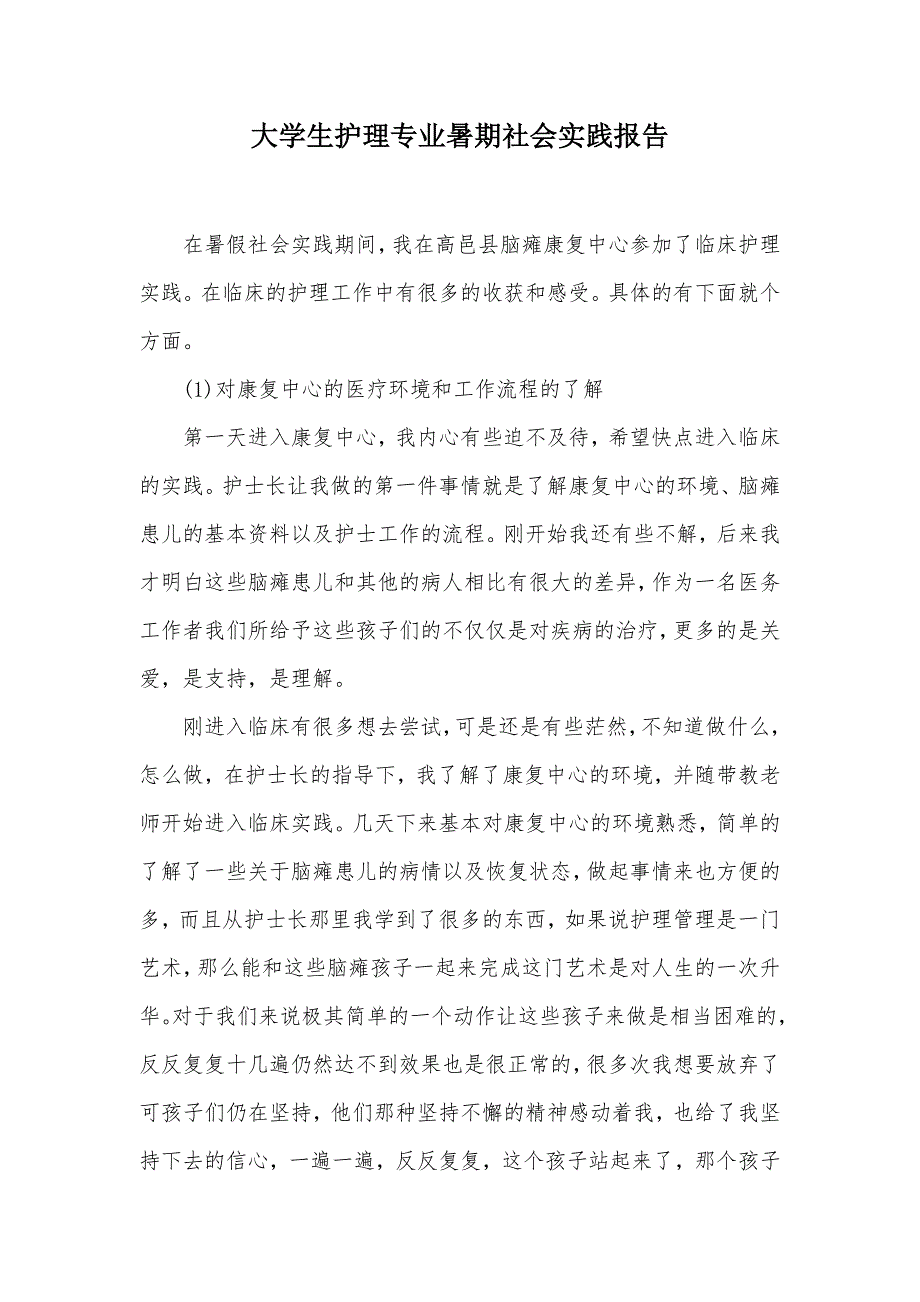 大学生护理专业暑期社会实践报告
在暑假社会实践期间,我在高邑县脑瘫康复中心参加了临床护理
实践。在临床的护理工作中有很多的收获和感受。具体的有下面就个
方面。
(1)对康复中心的医疗环境和工作流程的了解
第一天进入康复中心，我内心有些迫不及待，希望快点进入临床
的实践。护士长让我做的第一件事情就是了解康复中心的环境、脑瘫
患儿的基本资料以及护士工作的流程。刚开始我还有些不解，后来我
才明白这些脑瘫患儿和其他的病人相比有很大的差异，作为一名医务
工作者我们所给予这些孩子们的不仅仅是对疾病的治疗,更多的是关
爱，是支持，是理解。
刚进入临床有很多想去尝试,可是还是有些茫然,不知道做什么，
怎么做，在护士长的指导下，我了解了康复中心的环境，并随带教老
师开始进入临床实践。几天下来基本对康复中心的环境熟悉，简单的
了解了一些关于脑瘫患儿的病情以及恢复状态，做起事情来也方便的
多，而且从护士长那里我学到了很多的东西，如果说护理管理是一门
艺术,那么能和这些脑瘫孩子一起来完成这门艺术是对人生的一次升
华。对于我们来说极其简单的一个动作让这些孩子来做是相当困难的，
反反复复十几遍仍然达不到效果也是很正常的，很多次我想要放弃了
可孩子们仍在坚持，他们那种坚持不懈的精神感动着我，也给了我坚
持下去的信心，一遍一遍，反反复复，这个孩子站起来了，那个孩子